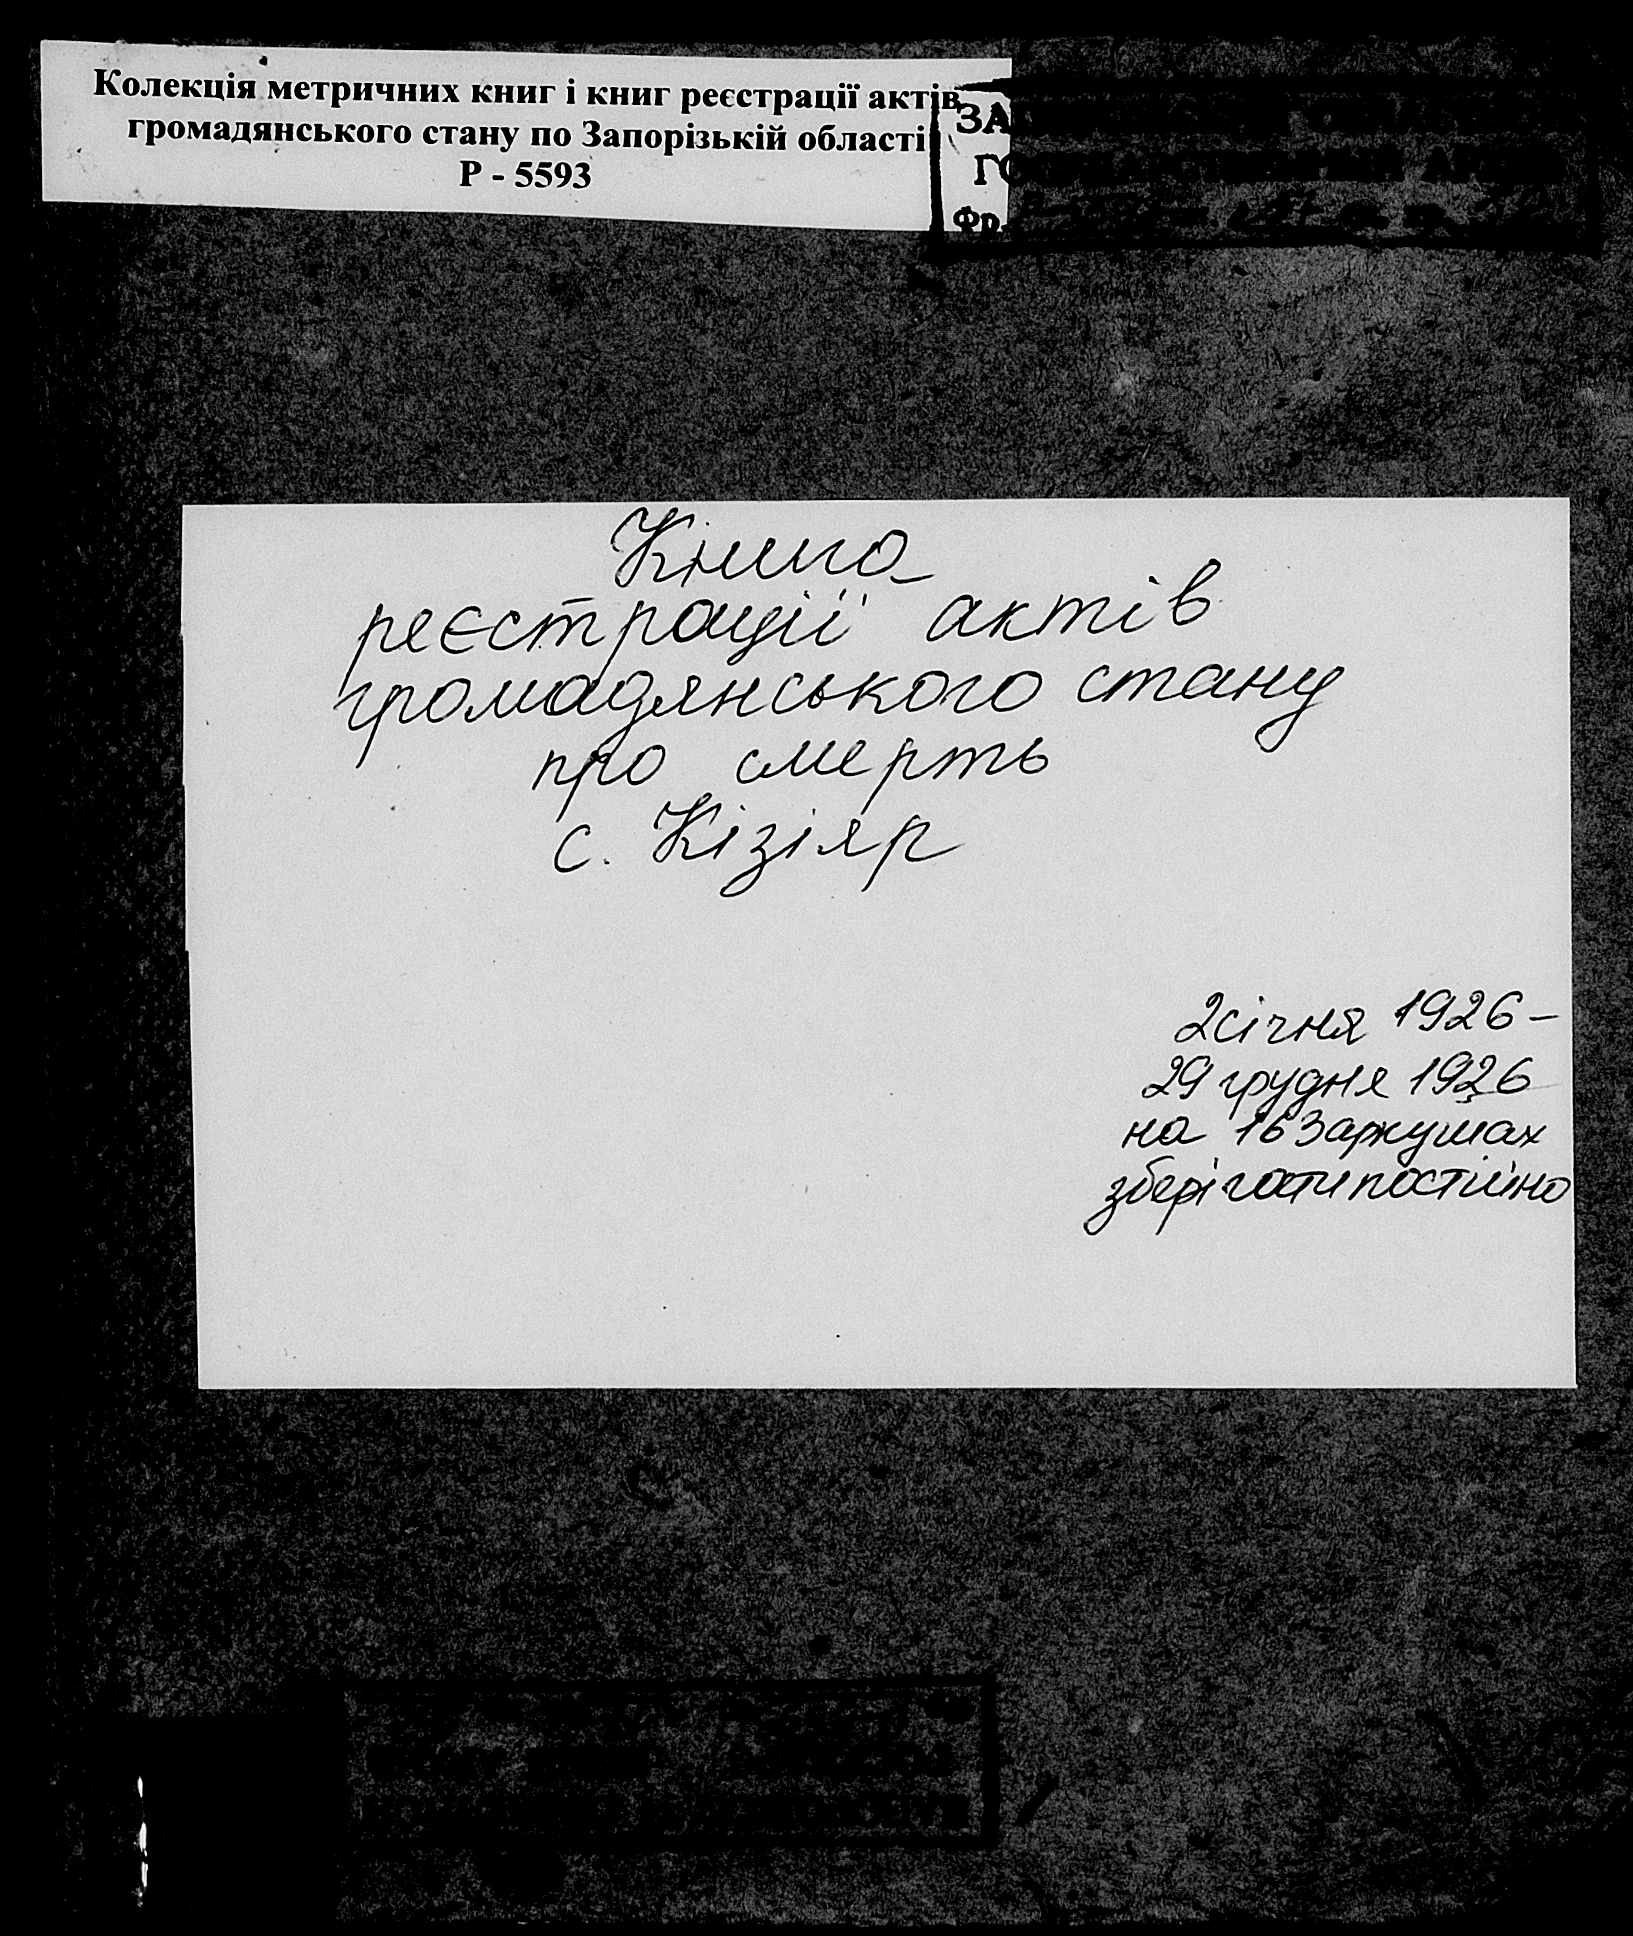 Колекція метричних книг і книг реєстрації актів
громадянського стану по Запорізькій області
Р - 5593
Книга
реєстрації актів
громадянського стану
про смерть
с. Кізіяр
2 січня 1926 -
29 грудня 1926
на 163 аркушах
зберігати постійно